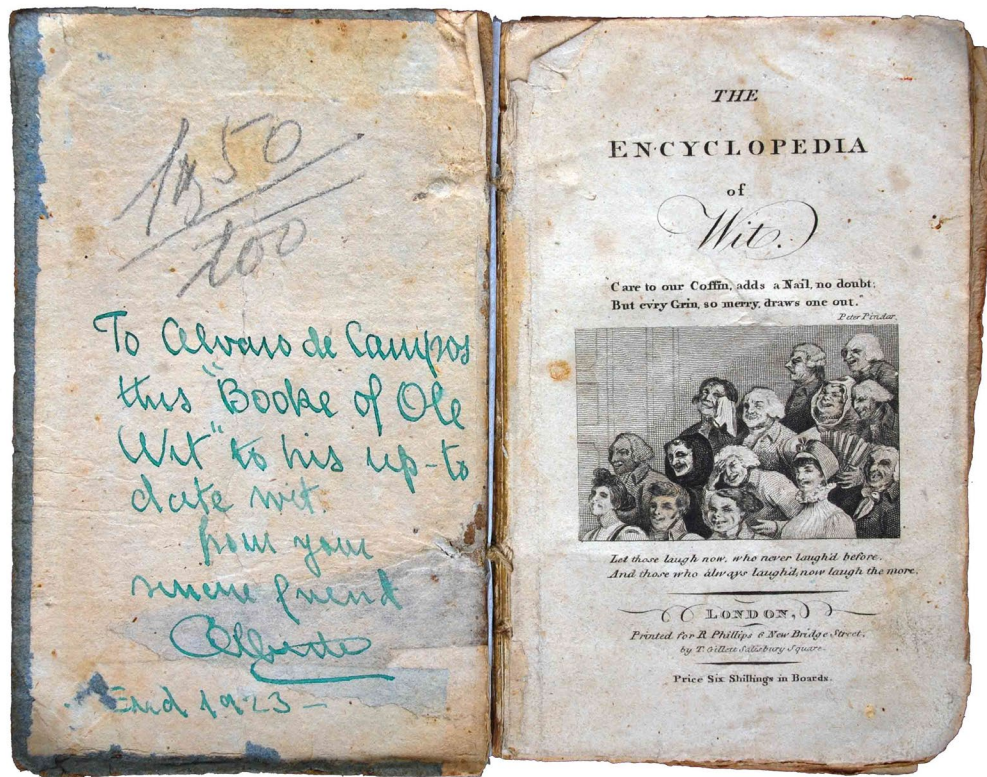 50
100
To Alvaro de Campos
this "Booke of Ole
Wit" to his up-to
date wit.
from your
sincere friend
End 1923 –
THE
ENCYCLOPEDIA
of
Wit.
"Care to our Coffin, adds a Nail, no doubt;
But ev'ry Grin, so merry, draws one out."
Peter Pindar.
Let those laugh now, who never laugh'd before,
And those who always laugh'd, now laugh the more.
LONDON,
Printed for R. Phillips 6 New Bridge Street,
by T. Gillett Salisbury Square.
Price Six Shillings in Boards.